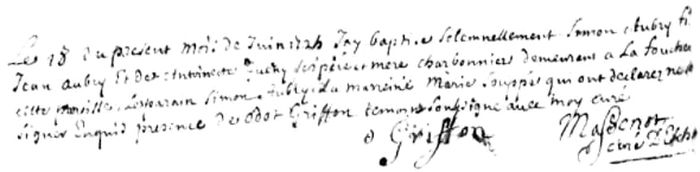 Le 18 du present mois de Juin 1724 J'ay baptisé solemnellement Simon Aubry fi
Jean Aubry Et de Antoinette ses pere et mere charbonniers demeurant a La
cette paroisse, Le parain Simon Aubry, La maraine Marie qui ont declarez ne
signer Enquis presence de Odot Griffon temoin soussigné avec moy curé
o Griffon Masdenot
curé